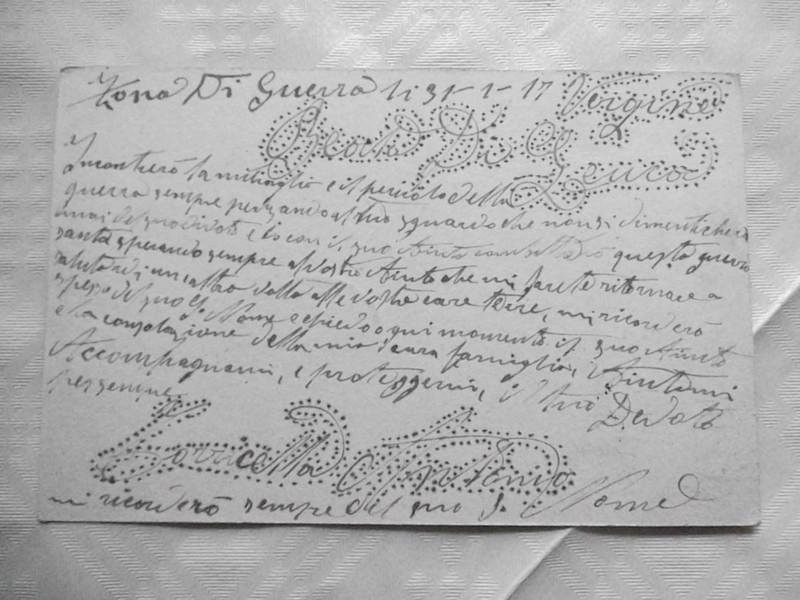 Zona Di Guerra li 31-1-17 Vergine
Beata Di Leuca
Incontrerò la mitraglia e il pericolo della
guerra sempre penzando al tuo sguardo che non si dimenticherà
mai del suo divoto e io con il suo Aiuto combatterò questa guerra
santa sperando sempre al Vostro Aiuto che mi farete ritornare a
salutarvi un altra volta alle Vostre care terre, mi ricorderò
spesso del suo S. Nome e chiedo ogni momento il suo Aiuto
e la consolazione della mia cara famiglia, Aiutami
Accompagnami, e proteggemi, il tuo Devoto
per sempre
Antonio
mi ricorderò sempre del suo S. Nome